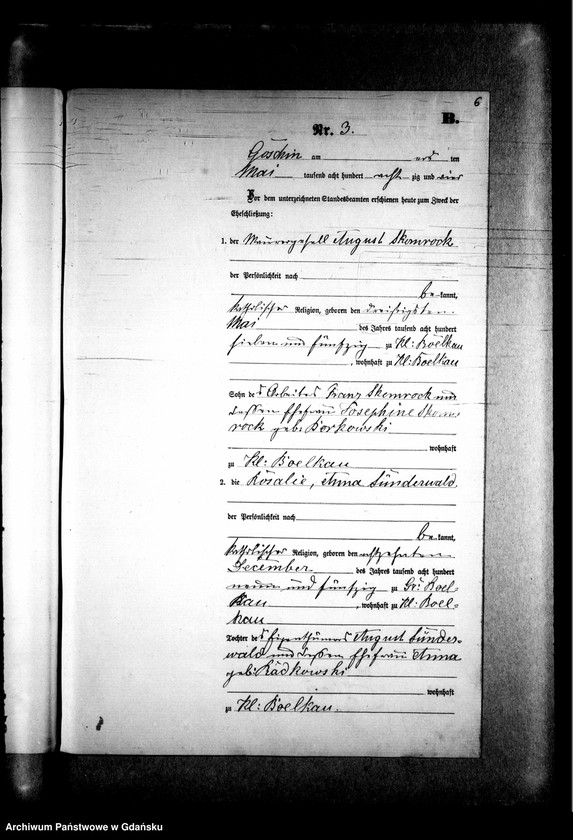 6
B.
Nr. 3.
Goschin am ersten
Mai tausend acht hundert achtzig und vier
Vor dem unterzeichneten Standesbeamten erschienen heute zum Zweck der
Eheschließung:
1. der Maurergesell August Skomrock
der Persönlichkeit nach
bekannt,
katholischer Religion, geboren den dreißigsten
Mai des Jahres tausend acht hundert
sieben und fünfzig zu Kl: Boelkau
, wohnhaft zu Kl: Boelkau
Sohn des Arbeiters Franz Skomrock und
dessen Ehefrau Josephine Skom-
rock geb: Borkowski
wohnhaft
zu Kl: Boelkau
2. die Rosalie, Anna Sünderwald
der Persönlichkeit nach
bekannt,
katholischer Religion, geboren den achtzehnten
December des Jahres tausend acht hundert
neun und fünfzig zu Gr: Boel-
kau, wohnhaft zu Kl: Boel-
kau
Tochter des Eigenthümers August Sünder-
wald und dessen Ehefrau Anna
geb: Radkowski
wohnhaft
zu Kl: Boelkau.
Archiwum Państwowe w Gdańsku